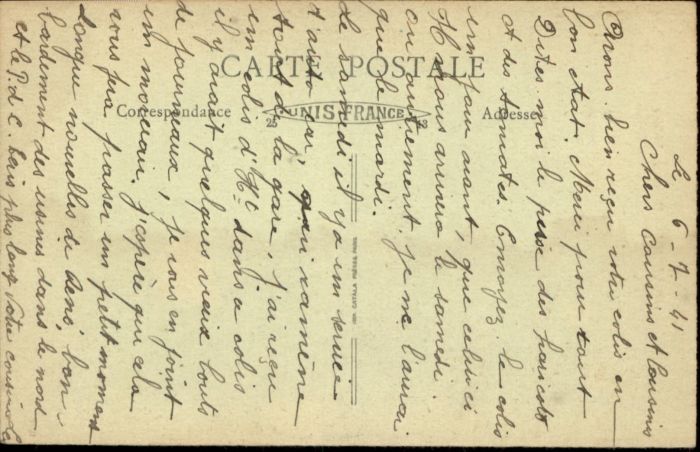 CARTE POSTALE
Correspondance
Adresse
UNIS-FRANCE
Le 6-7-41
Chers Cousins et Cousines
Avons bien reçu votre colis en
bon état. Merci pour tout
Dites moi le prix des haricots
et des tomates. Envoyez le colis
un jour avant, que celui ci
nous arrive le samedi.
autrement je ne l'aurai
que le mardi.
Le samedi il y a un service
d'autocar, qui ramène
tout à la gare, j'ai reçu
un colis d'Ht. dans ce colis
il y avait quelques vieux bouts
de journaux, je vous en joint
un morceau. j'espère que cela
vous fra passer un petit moment
longue nouvelles de Denis, bom
bardement des usines dans le nord
et le P.d.C. Bais plus long Votre cousin